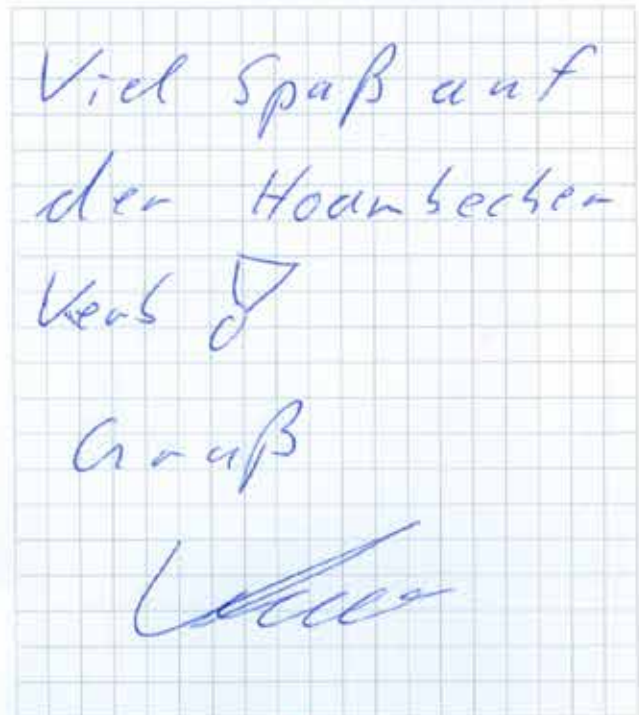 Viel Spaß auf
der Hoambecher
Kerb!
Gruß